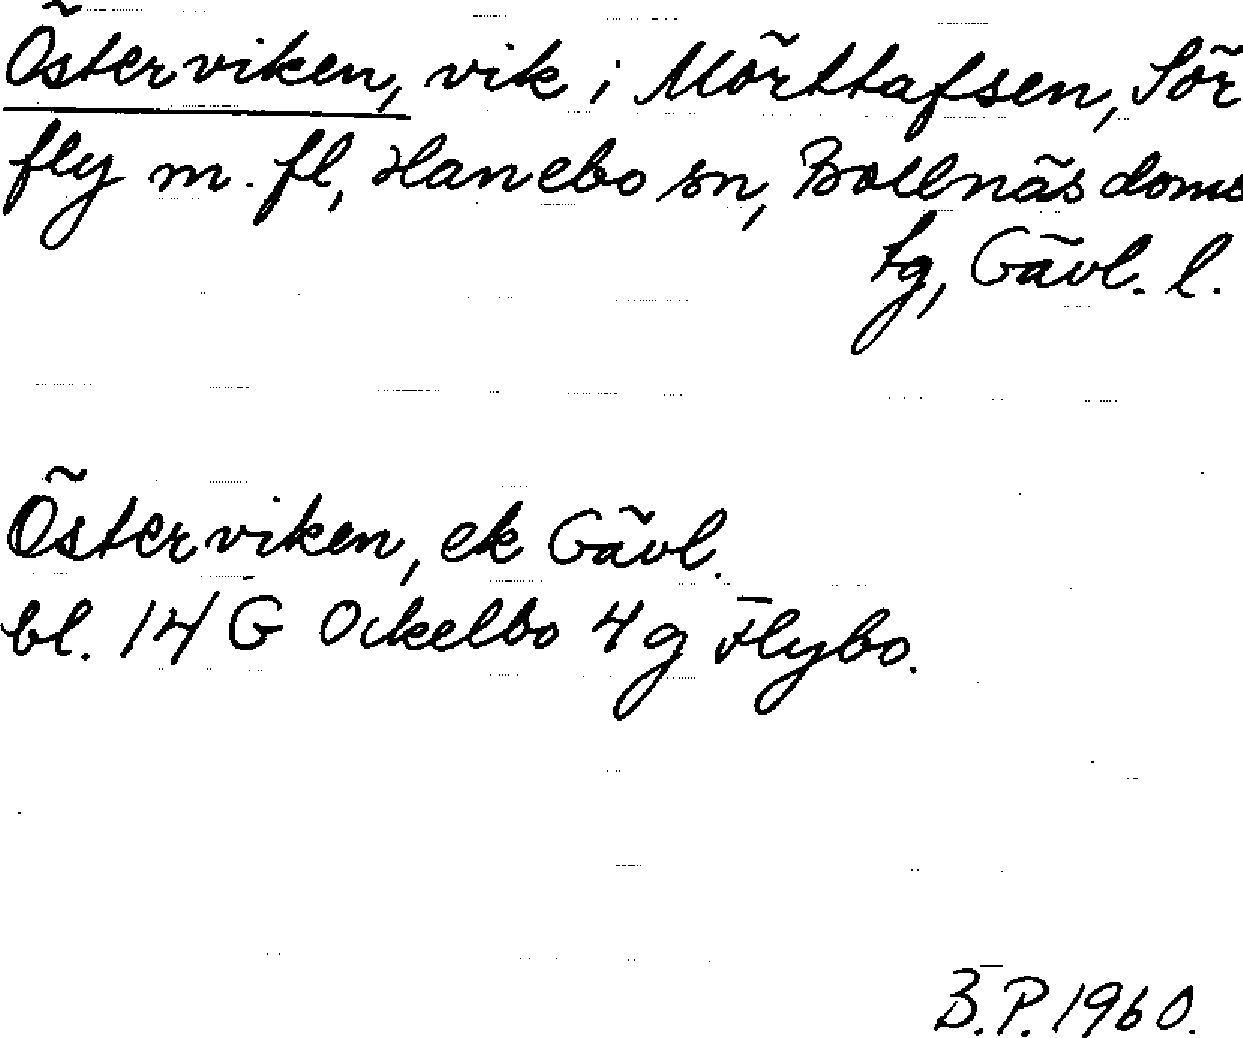 Österviken, vik i Mörttafsen, Sör
fly m. fl, Hanebo sn, Bollnäs doms
tg, Gävl. l.
Österviken, ek Gävl.
bl. 14 G Ockelbo 4 g Flybo.
B.P. 1960.